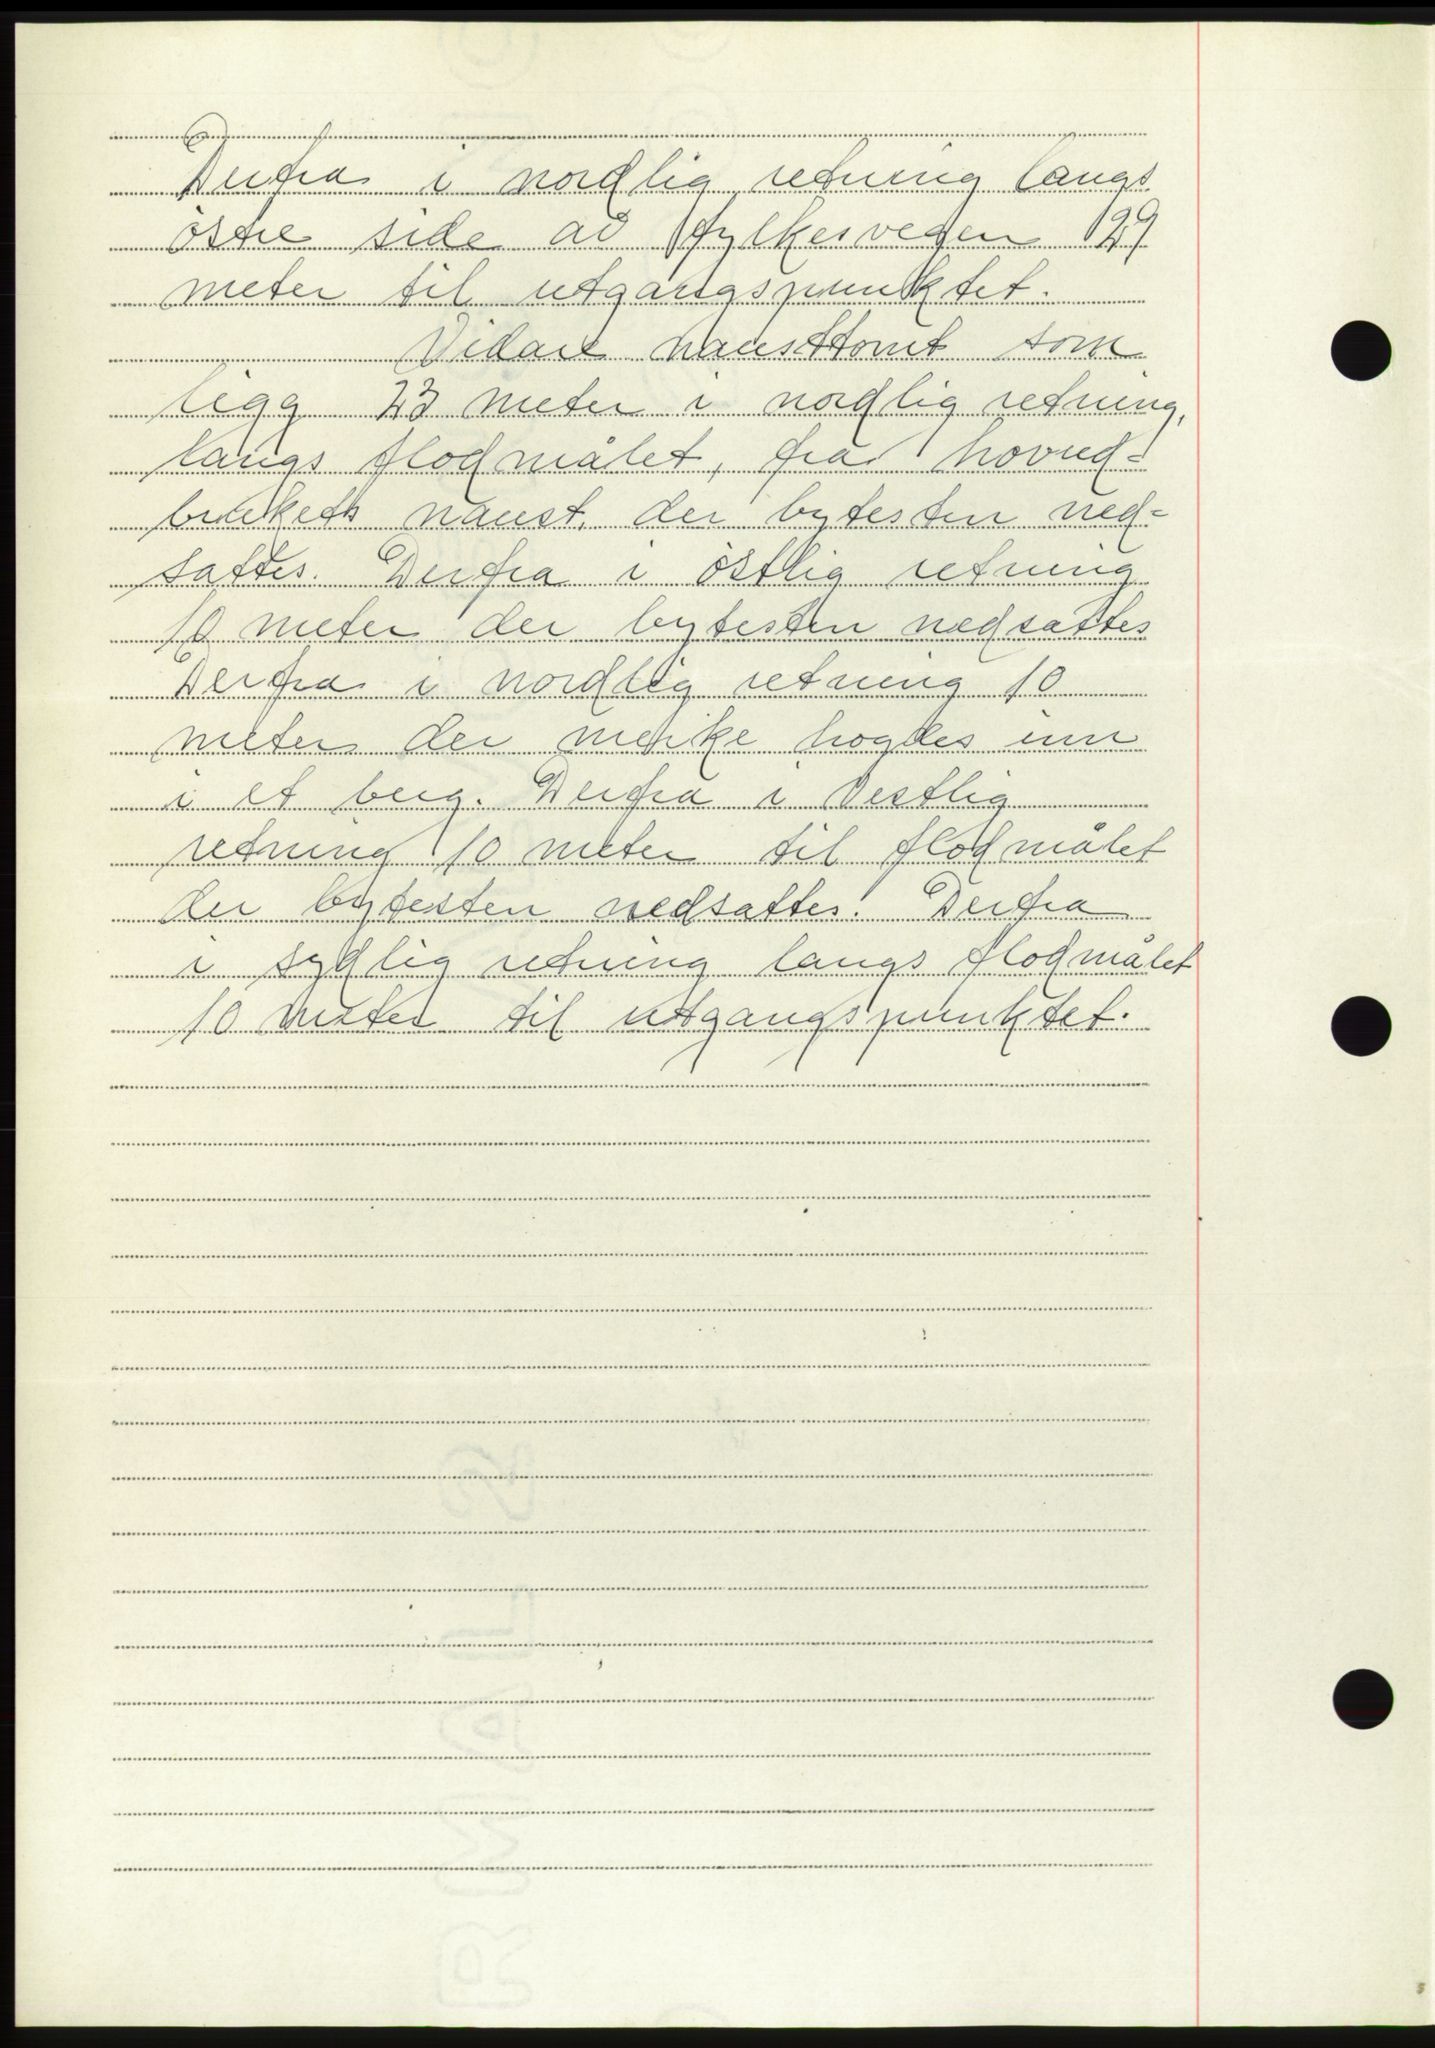 Derfra i nordlig retning langs
östre side av fylkesvegen 29
meter til utgangspunktet.
Vidare nausttomt som
ligg 23 meter i nordlig retning,
langs flodmålet, fra hovud=
brukets naust, der bytesten ned=
sattes. Derfra i östlig retning
10 meter der bytesten nedsattes
Derfra i nordlig retning 10
meter der merke hogdes inn
i et berg. Derfra i vestlig
retning 10 meter til flodmålet
der bytesten nedsattes. Derfra
i sydlig retning langs flodmålet
10 meter til utgangspunktet.